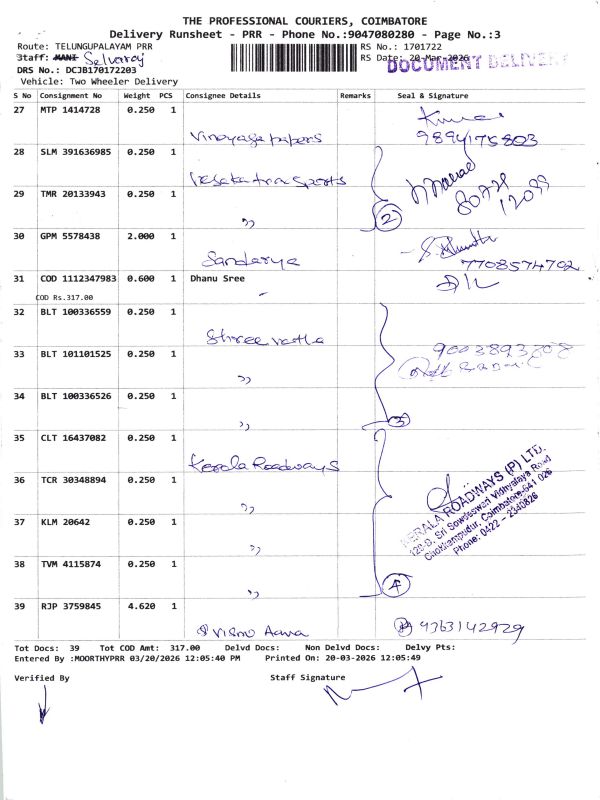 THE PROFESSIONAL COURIERS, COIMBATORE
Delivery Runsheet - PRR - Phone No.:9047080280 - Page No.:3
Route: TELUNGUPALAYAM PRR RS No.: 1701722
Staff: MANI Selvaraj RS Date: 20-Mar-2026
DOCUMENT DELIVERY
DRS No.: DCJB170172203
Vehicle: Two Wheeler Delivery
S No Consignment No Weight PCS Consignee Details Remarks Seal & Signature
27 MTP 1414728 0.250 1
Vinayaga papers 9894175803
28 SLM 391636985 0.250 1
29 TMR 20133943 0.250 1
" 2
30 GPM 5578438 2.000 1
7708574702
31 COD 1112347983 0.600 1 Dhanu Sree
COD Rs.317.00
32 BLT 100336559 0.250 1
Shree
33 BLT 101101525 0.250 1
"
34 BLT 100336526 0.250 1
" 3
35 CLT 16437082 0.250 1
Kerala Roadways
36 TCR 30348894 0.250 1
"
KERALA ROADWAYS (P) LTD.
120-B, Sri Sowdeswari Vidhyalaya Road
Chokkampudur, Coimbatore-641 026
Phone: 0422 - 2340826
37 KLM 20642 0.250 1
"
38 TVM 4115874 0.250 1
" 4
39 RJP 3759845 4.620 1
9363142929
Tot Docs: 39 Tot COD Amt: 317.00 Delvd Docs: Non Delvd Docs: Delvy Pts:
Entered By :MOORTHYPRR 03/20/2026 12:05:40 PM Printed On: 20-03-2026 12:05:49
Verified By Staff Signature